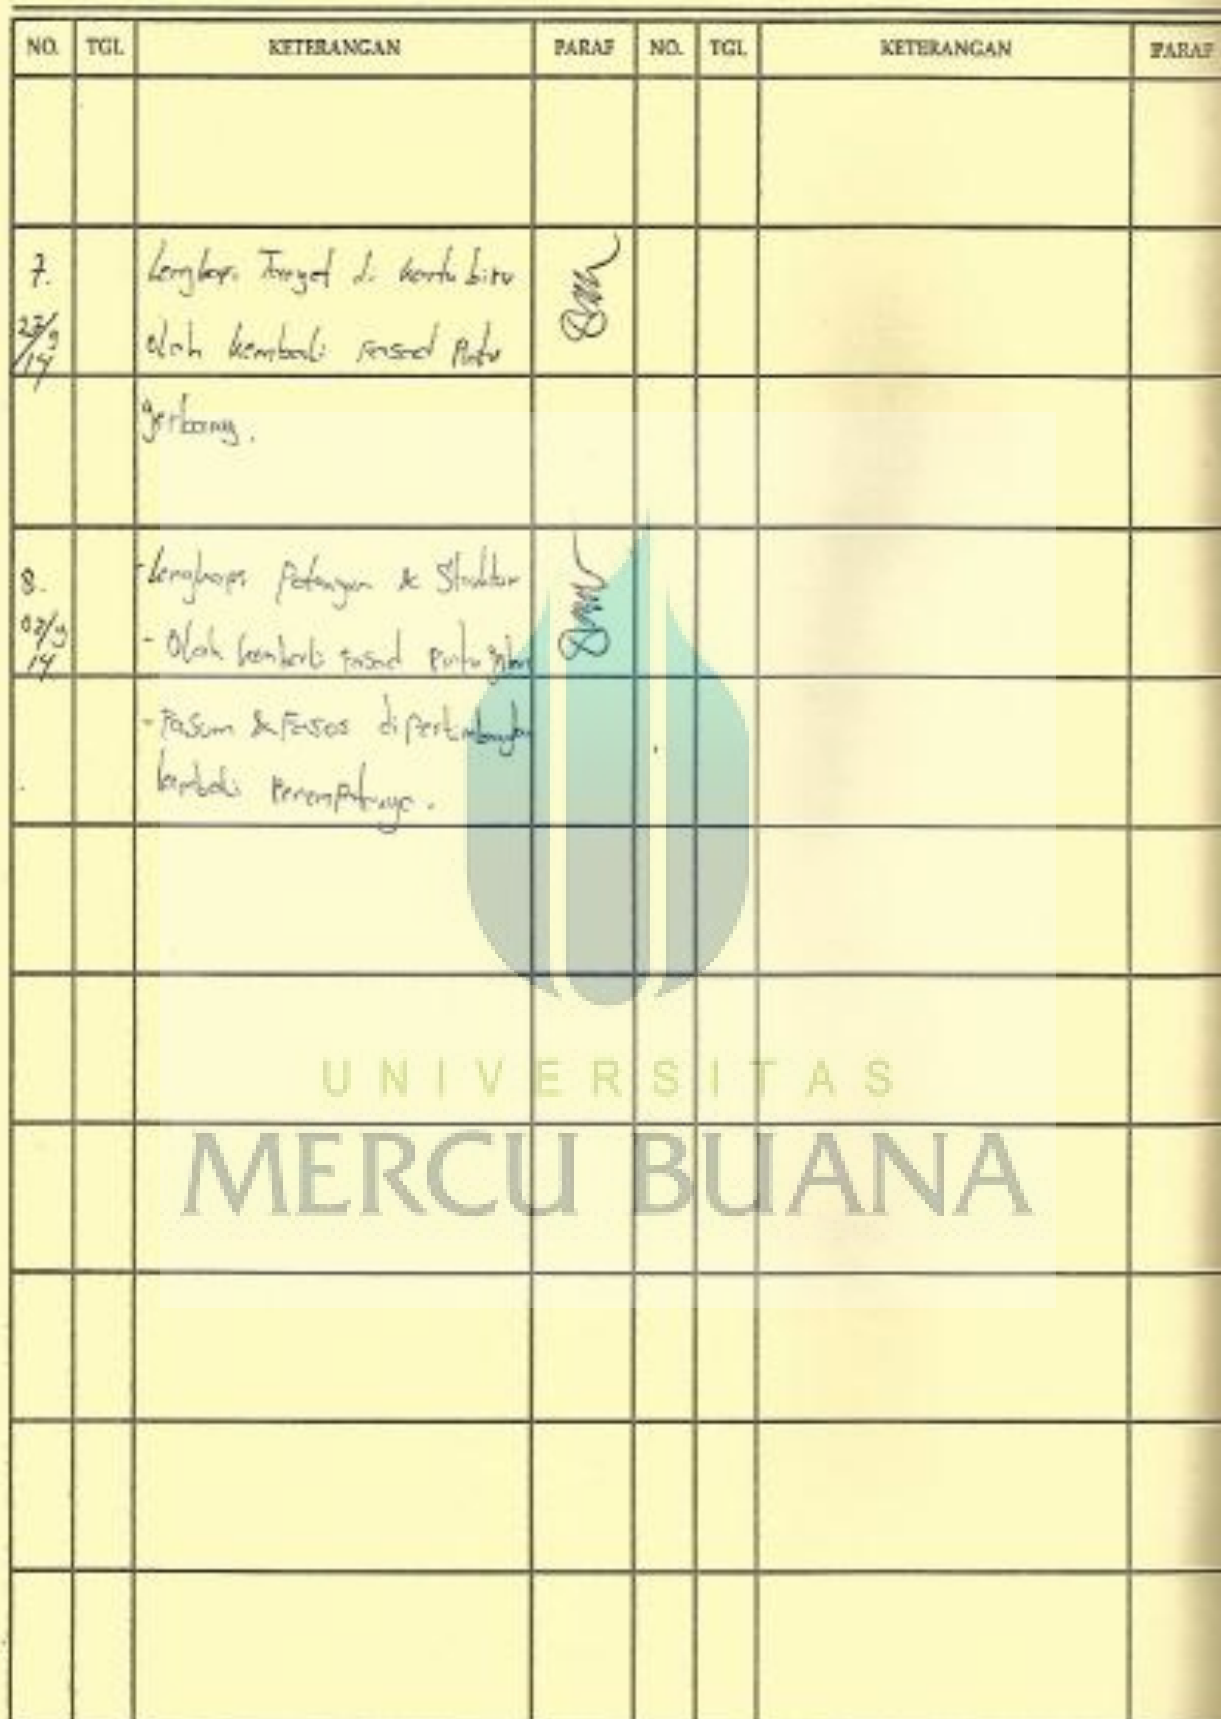 NO. TGL KETERANGAN PARAF NO. TGL KETERANGAN PARAF
7. Lengkapi Target di kartu biru
22/9/14 Olah kembali Fasad Pintu
gerbang.
8. - Lengkapi Potongan & Struktur
02/9 14 - Olah kembali Fasad Pintu
- Fasum & Fasos dipertimbangkan
kembali Penempatannya.
UNIVERSITAS
MERCU BUANA